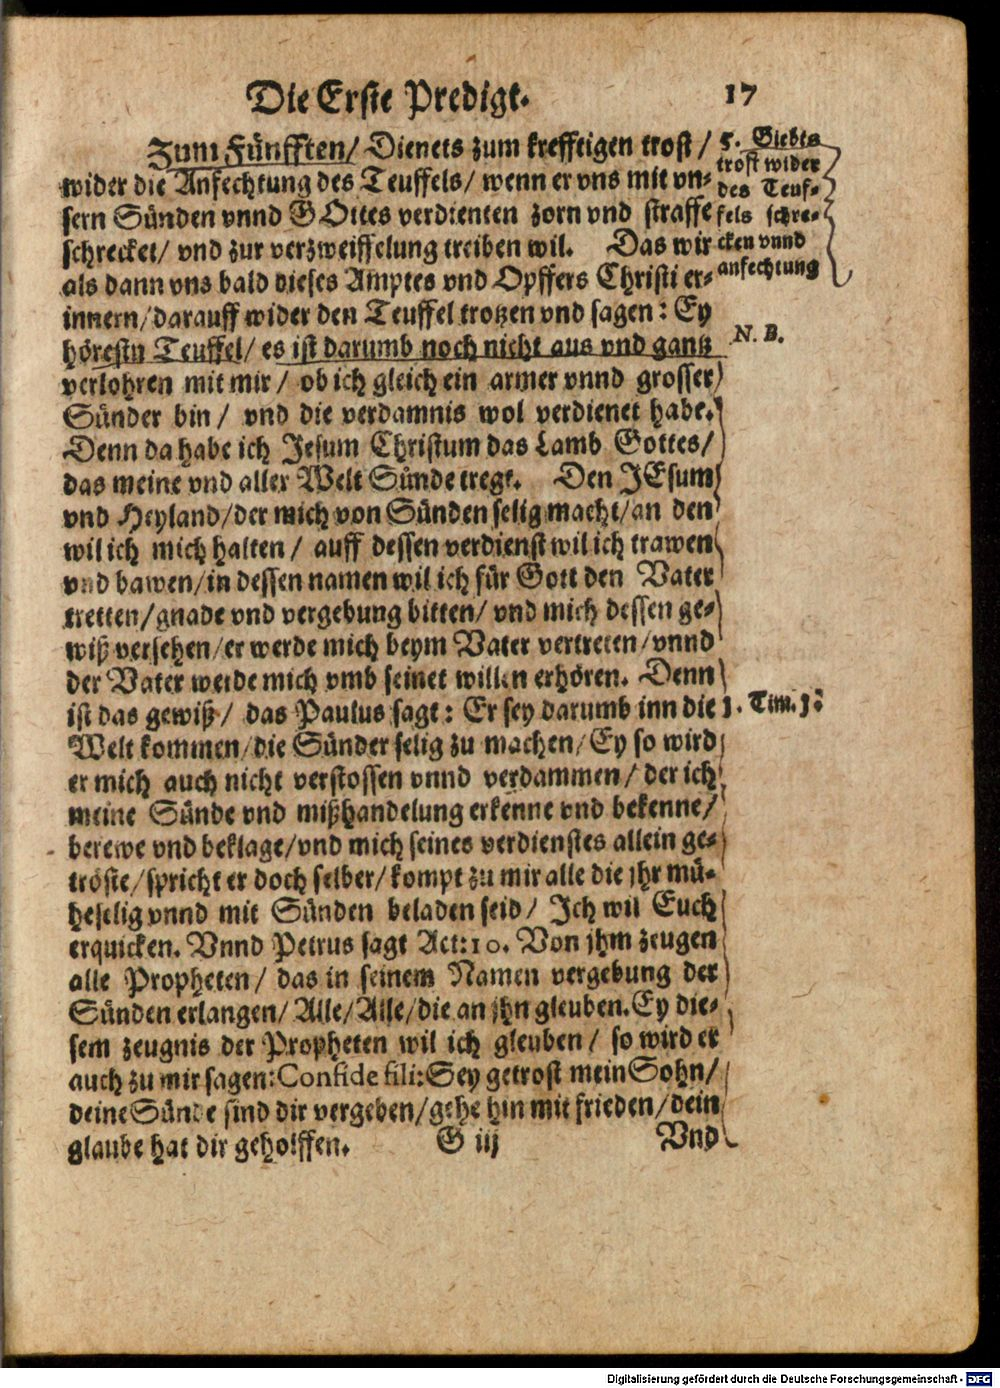 Die Erste Predigt. 17
Zum Fünfften/ Dienets zum krefftigen trost/
wider die Anfechtung des Teuffels/ wenn er vns mit vn-
sern Sünden vnnd GOttes verdienten zorn vnd straffe
schrecket/ vnd zur verzweiffelung treiben wil. Das wir
als dann vns bald dieses Amptes vnd Opffers Christi er-
innern/ darauff wider den Teuffel trotzen vnd sagen: Ey
hörestu Teuffel/ es ist darumb noch nicht aus vnd gantz
verlohren mit mir/ ob ich gleich ein armer vnnd grosser
Sünder bin/ vnd die verdamnis wol verdienet habe.
Denn da habe ich Jesum Christum das Lamb Gottes/
das meine vnd aller Welt Sünde tregt. Den JEsum
vnd Heyland/ der mich von Sünden selig macht/ an den
wil ich mich halten/ auff dessen verdienst wil ich trawen
vnd bawen/ in dessen namen wil ich für Gott den Vater
tretten/ gnade vnd vergebung bitten/ vnd mich dessen ge-
wiß versehen/ er werde mich beym Vater vertreten/ vnnd
der Vater werde mich vmb seinet willen erhören. Denn
ist das gewiß/ das Paulus sagt: Er sey darumb inn die
Welt kommen/ die Sünder selig zu machen/ Ey so wird
er mich auch nicht verstossen vnnd verdammen/ der ich
meine Sünde vnd mißhandelung erkenne vnd bekenne/
berewe vnd beklage/ vnd mich seines verdienstes allein ge-
tröste/ spricht er doch selber/ kompt zu mir alle die jhr mü-
heselig vnnd mit Sünden beladen seid/ Ich wil Euch
erquicken. Vnnd Petrus sagt Act: 10. Von jhm zeugen
alle Propheten/ das in seinem Namen vergebung der
Sünden erlangen/ Alle/ Alle/ die an jhn gleuben. Ey die-
sem zeugnis der Propheten wil ich gleuben/ so wird er
auch zu mir sagen: Confide fili: Sey getrost mein Sohn/
deine Sünde sind dir vergeben/ gehe hin mit frieden/ dein
glaube hat dir geholffen. G iij Vnd
5. Giebts
trost wider
des Teuf-
fels schre-
cken vnnd
anfechtung
N. B.
1. Tim. 1.
Digitalisierung gefördert durch die Deutsche Forschungsgemeinschaft - DFG